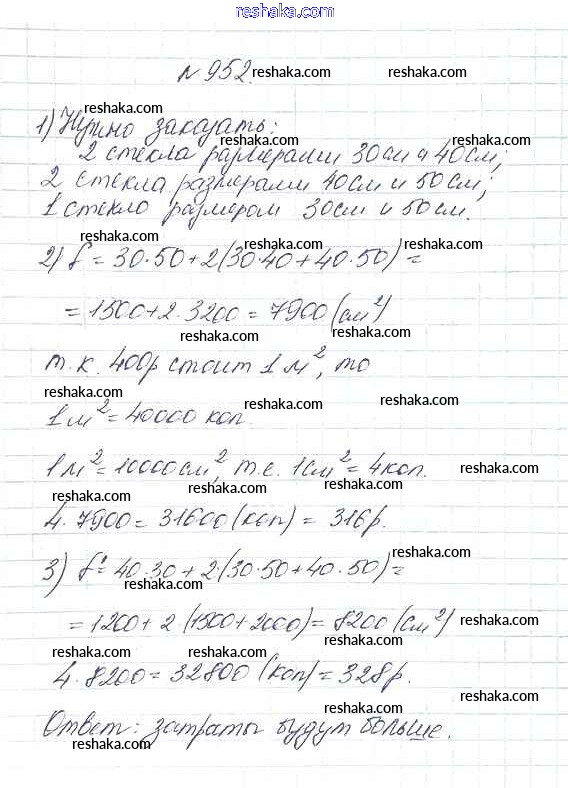 reshaka.com
№ 952. reshaka.com reshaka.com
reshaka.com
1) Нужно заказать:
reshaka.com reshaka.com
2 стекла размерами 30 см и 40 см;
reshaka.com reshaka.com
2 стекла размерами 40 см и 50 см;
1 стекло размером 30 см и 50 см.
reshaka.com reshaka.com
2) S = 30·50 + 2(30·40 + 40·50) = reshaka.com
= 1500 + 2·3200 = 7900 (см²)
reshaka.com reshaka.com
т.к. 400р стоит 1 м², то
reshaka.com reshaka.com
1 м² = 40000 коп.
reshaka.com reshaka.com
1 м² = 10000 см², т.е. 1 см² = 4 коп. reshaka.com
reshaka.com reshaka.com
4·7900 = 31600 (коп) = 316 р.
reshaka.com
reshaka.com
3) S = 40·30 + 2·(30·50 + 40·50) =
reshaka.com
= 1200 + 2 (1500 + 2000) = 8200 (см²) reshaka.com
reshaka.com reshaka.com
4·8200 = 32800 (коп) = 328 р.
reshaka.com reshaka.com
Ответ: затраты будут больше. reshaka.com
reshaka.com